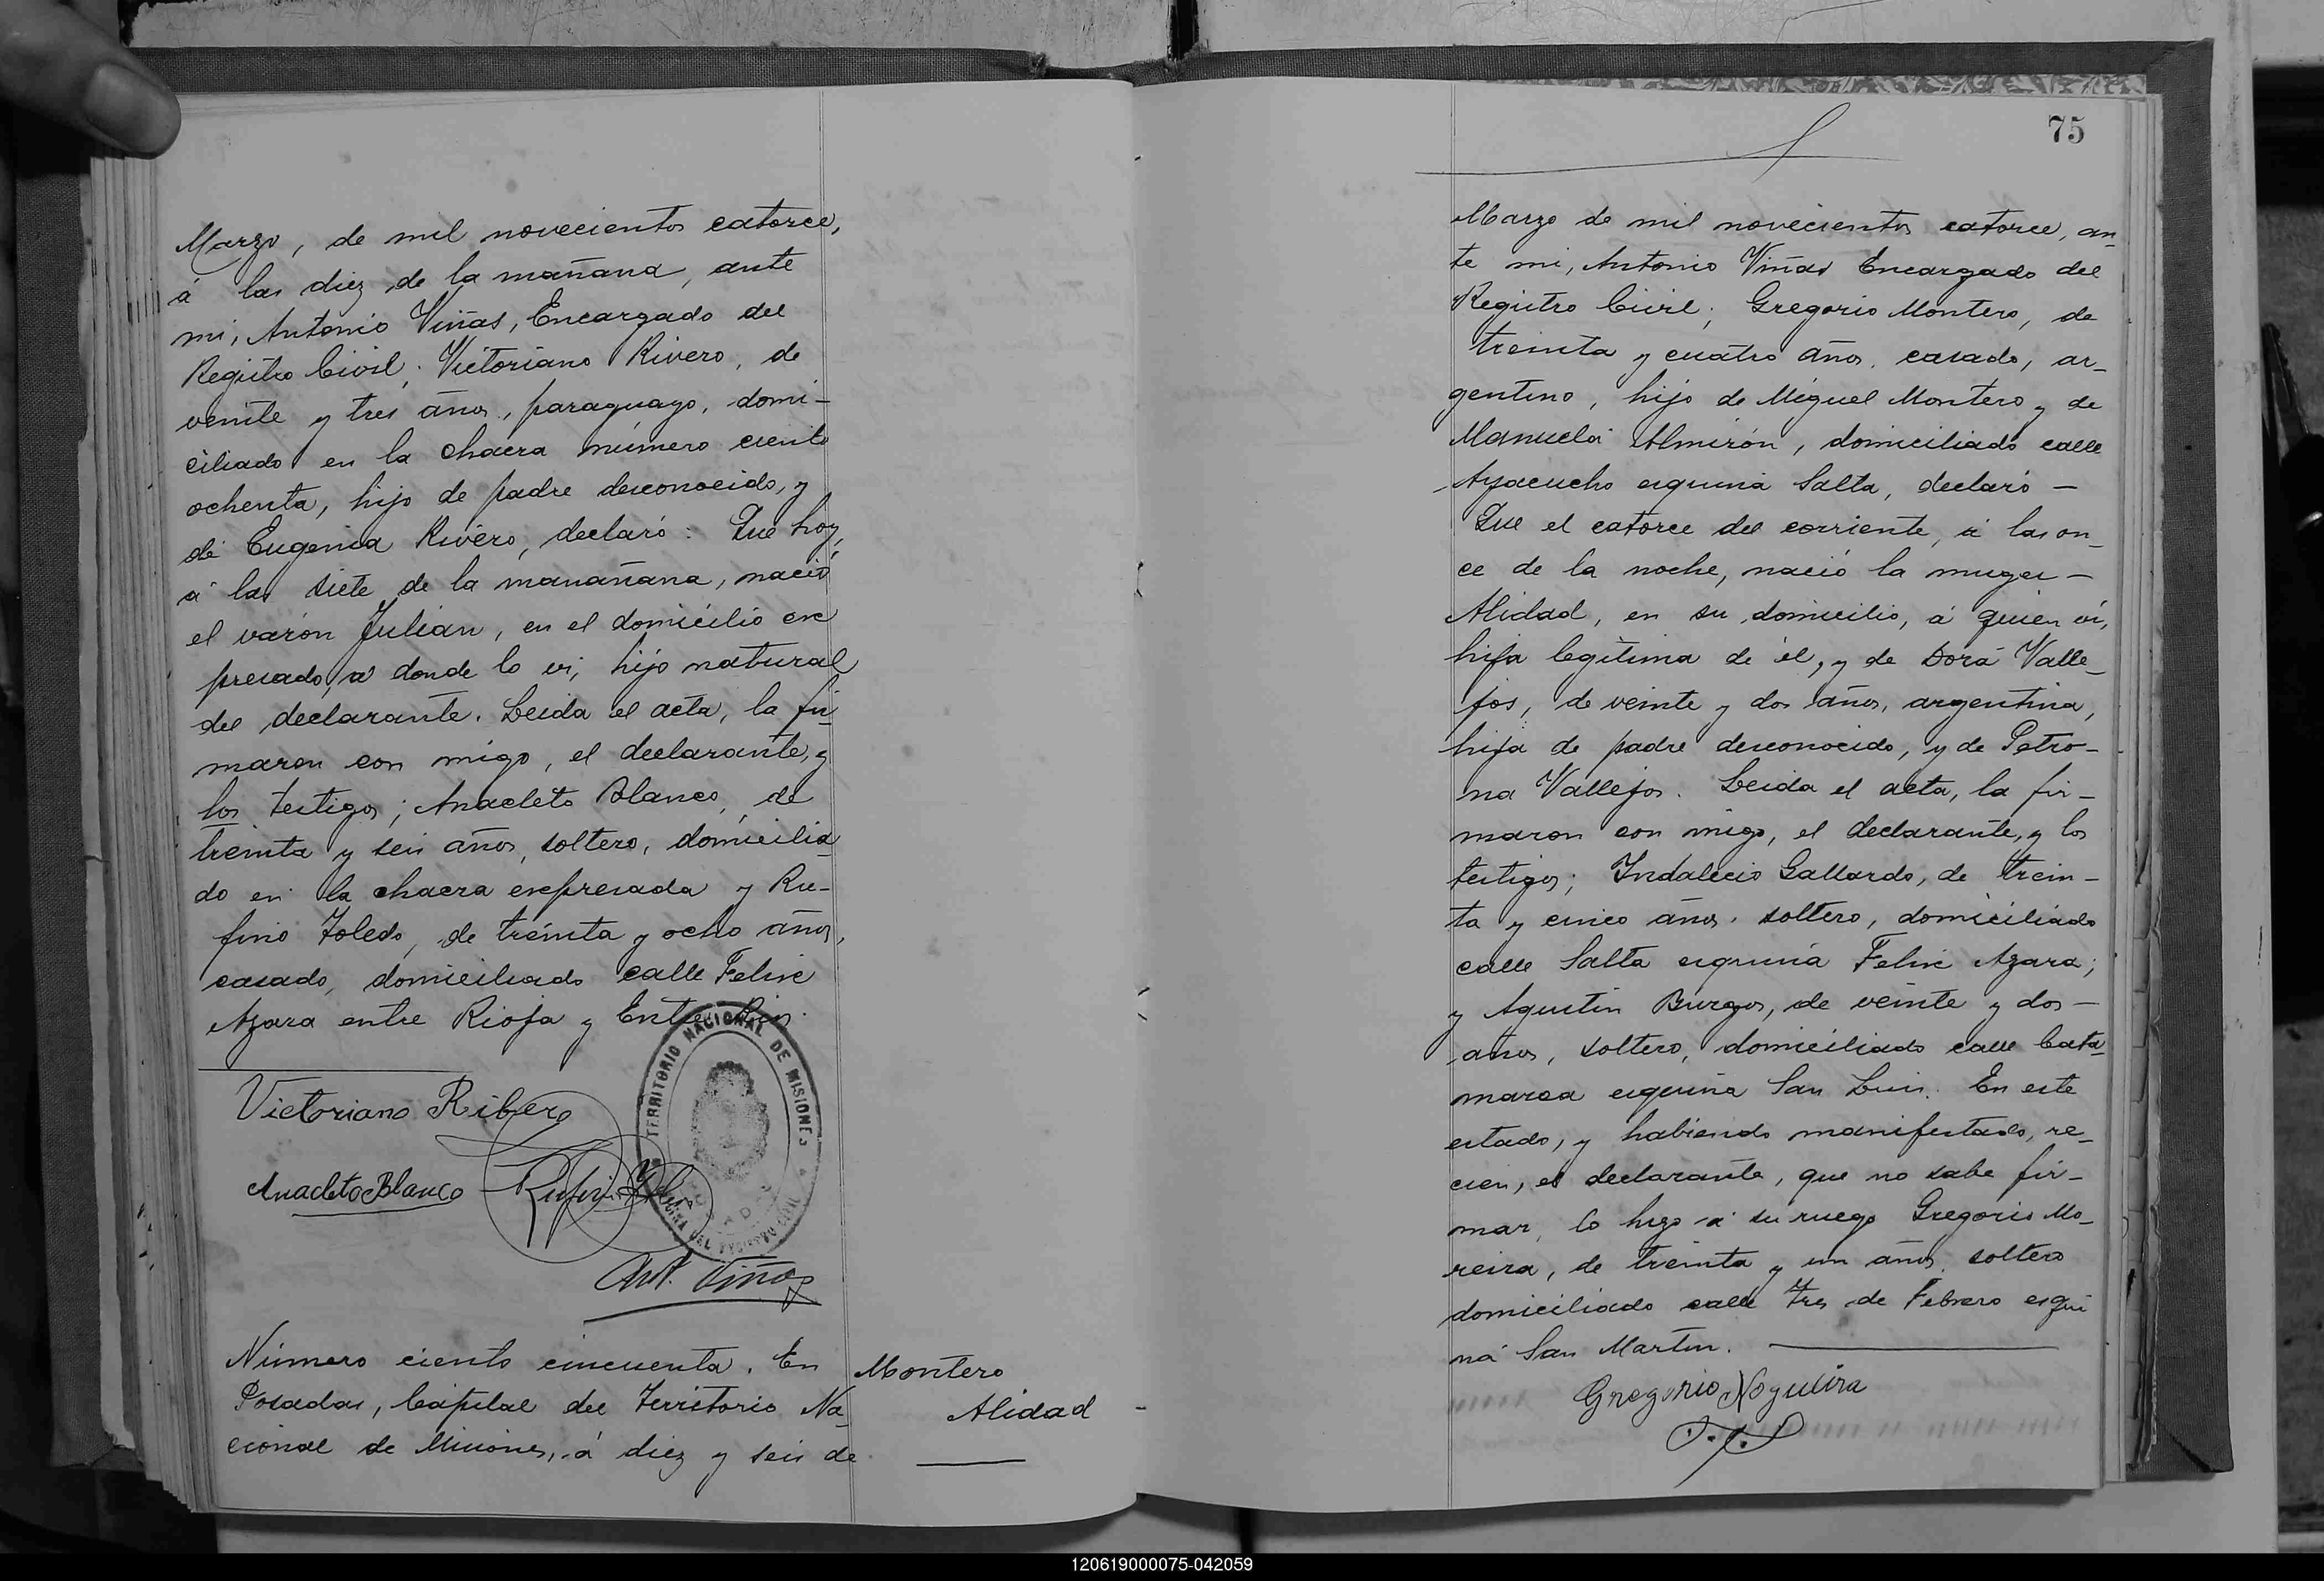 Marzo, de mil novecientos catorce,
á las diez de la mañana, ante
mi, Antonio Viñas, Encargado del
Registro Civil; Victoriano Rivero, de
veinte y tres años, paraguayo, domi-
ciliado en la chacra número ciento
ochenta, hijo de padre desconocido, y
de Eugenia Rivero, declaró: Que hoy,
á las siete de la manañana, nació
el varón Julian, en el domicilio ex
presado, a donde lo vi; hijo natural
del declarante. Leida el acta, la fir-
maron con migo, el declarante, y
los testigos; Anacleto Blanco, de
treinta y seis años, soltero, domicilia
do en la chacra expresada y Ru-
fino Toledo, de treinta y ocho años,
casado, domiciliado calle Felix
Azara entre Rioja y Entre Rios.
TERRITORIO NACIONAL DE MISIONES
OFICINA DEL REGISTRO CIVIL
Victoriano Ribero
Anacleto Blanco Rufino
Ant. Viñas
Número ciento cincuenta. En
Posadas, Capital del Territorio Na-
cional de Misiones, á diez y seis de
Montero
Alidad
75
Marzo de mil novecientos catorce, an-
te mi, Antonio Viñas Encargado del
Registro Civil; Gregorio Montero, de
treinta y cuatro años, casado, ar-
gentino, hijo de Miguel Montero y de
Manuela Almirón, domiciliado calle
Ayacucho esquina Salta, declaró —
Que el catorce del corriente, á las on-
ce de la noche, nació la muger —
Alidad, en su domicilio, á quien vi,
hija legítima de él, y de Dora Valle-
jos, de veinte y dos años, argentina,
hija de padre desconocido, y de Petro-
na Vallejos. Leida el acta, la fir-
maron con migo, el declarante, y los
testigos; Indalecio Gallardo, de trein-
ta y cinco años, soltero, domiciliado
calle Salta esquina Felix Azara;
y Agustin Burgos, de veinte y dos —
años, soltero, domiciliado calle Cata-
marca esquina San Luis. En este
estado, y habiendo manifestado, re-
cien, el declarante, que no sabe fir-
mar, lo hizo á su ruego Gregorio Mo-
reira, de treinta y un años, soltero
domiciliado calle Tres de Febrero esqui
na San Martin.
Gregorio Nogueira
120619000075-042059